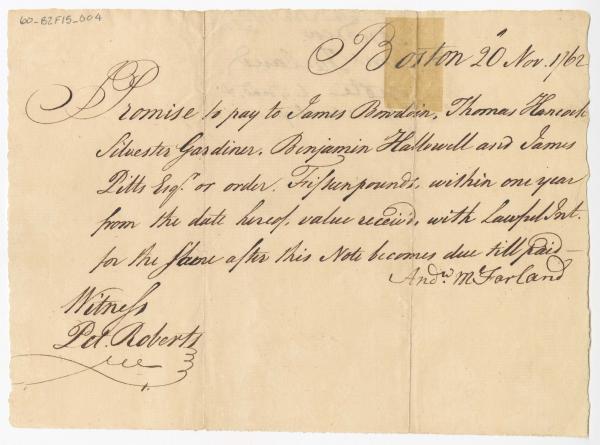 60-B2F15-004
Boston 20 Nov. 1762
I Promise to pay to James Bowdoin, Thomas Hancock
Silvester Gardiner, Benjamin Hallowell and James
Pitts Esqr. or order. Fifteen pounds, within one year
from the date hereof, value receiv'd, with Lawful Int.
for the Same after this Note becomes due till paid—
Andw. McFarland
Witness
Pet. Roberts